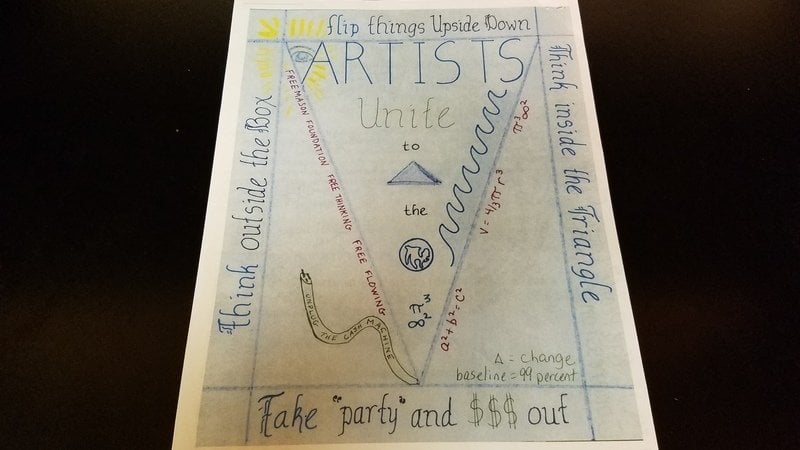 flip things Upside Down
ARTISTS
Unite
to
the
Think outside the Box
Think inside the Triangle
FREEMASON FOUNDATION FREE THINKING FREE FLOWING
V = 4/3 π r³
a² + b² = c²
UNPLUG THE CASH MACHINE
Δ = change
baseline = 99 percent
Take "party" and $$$ out